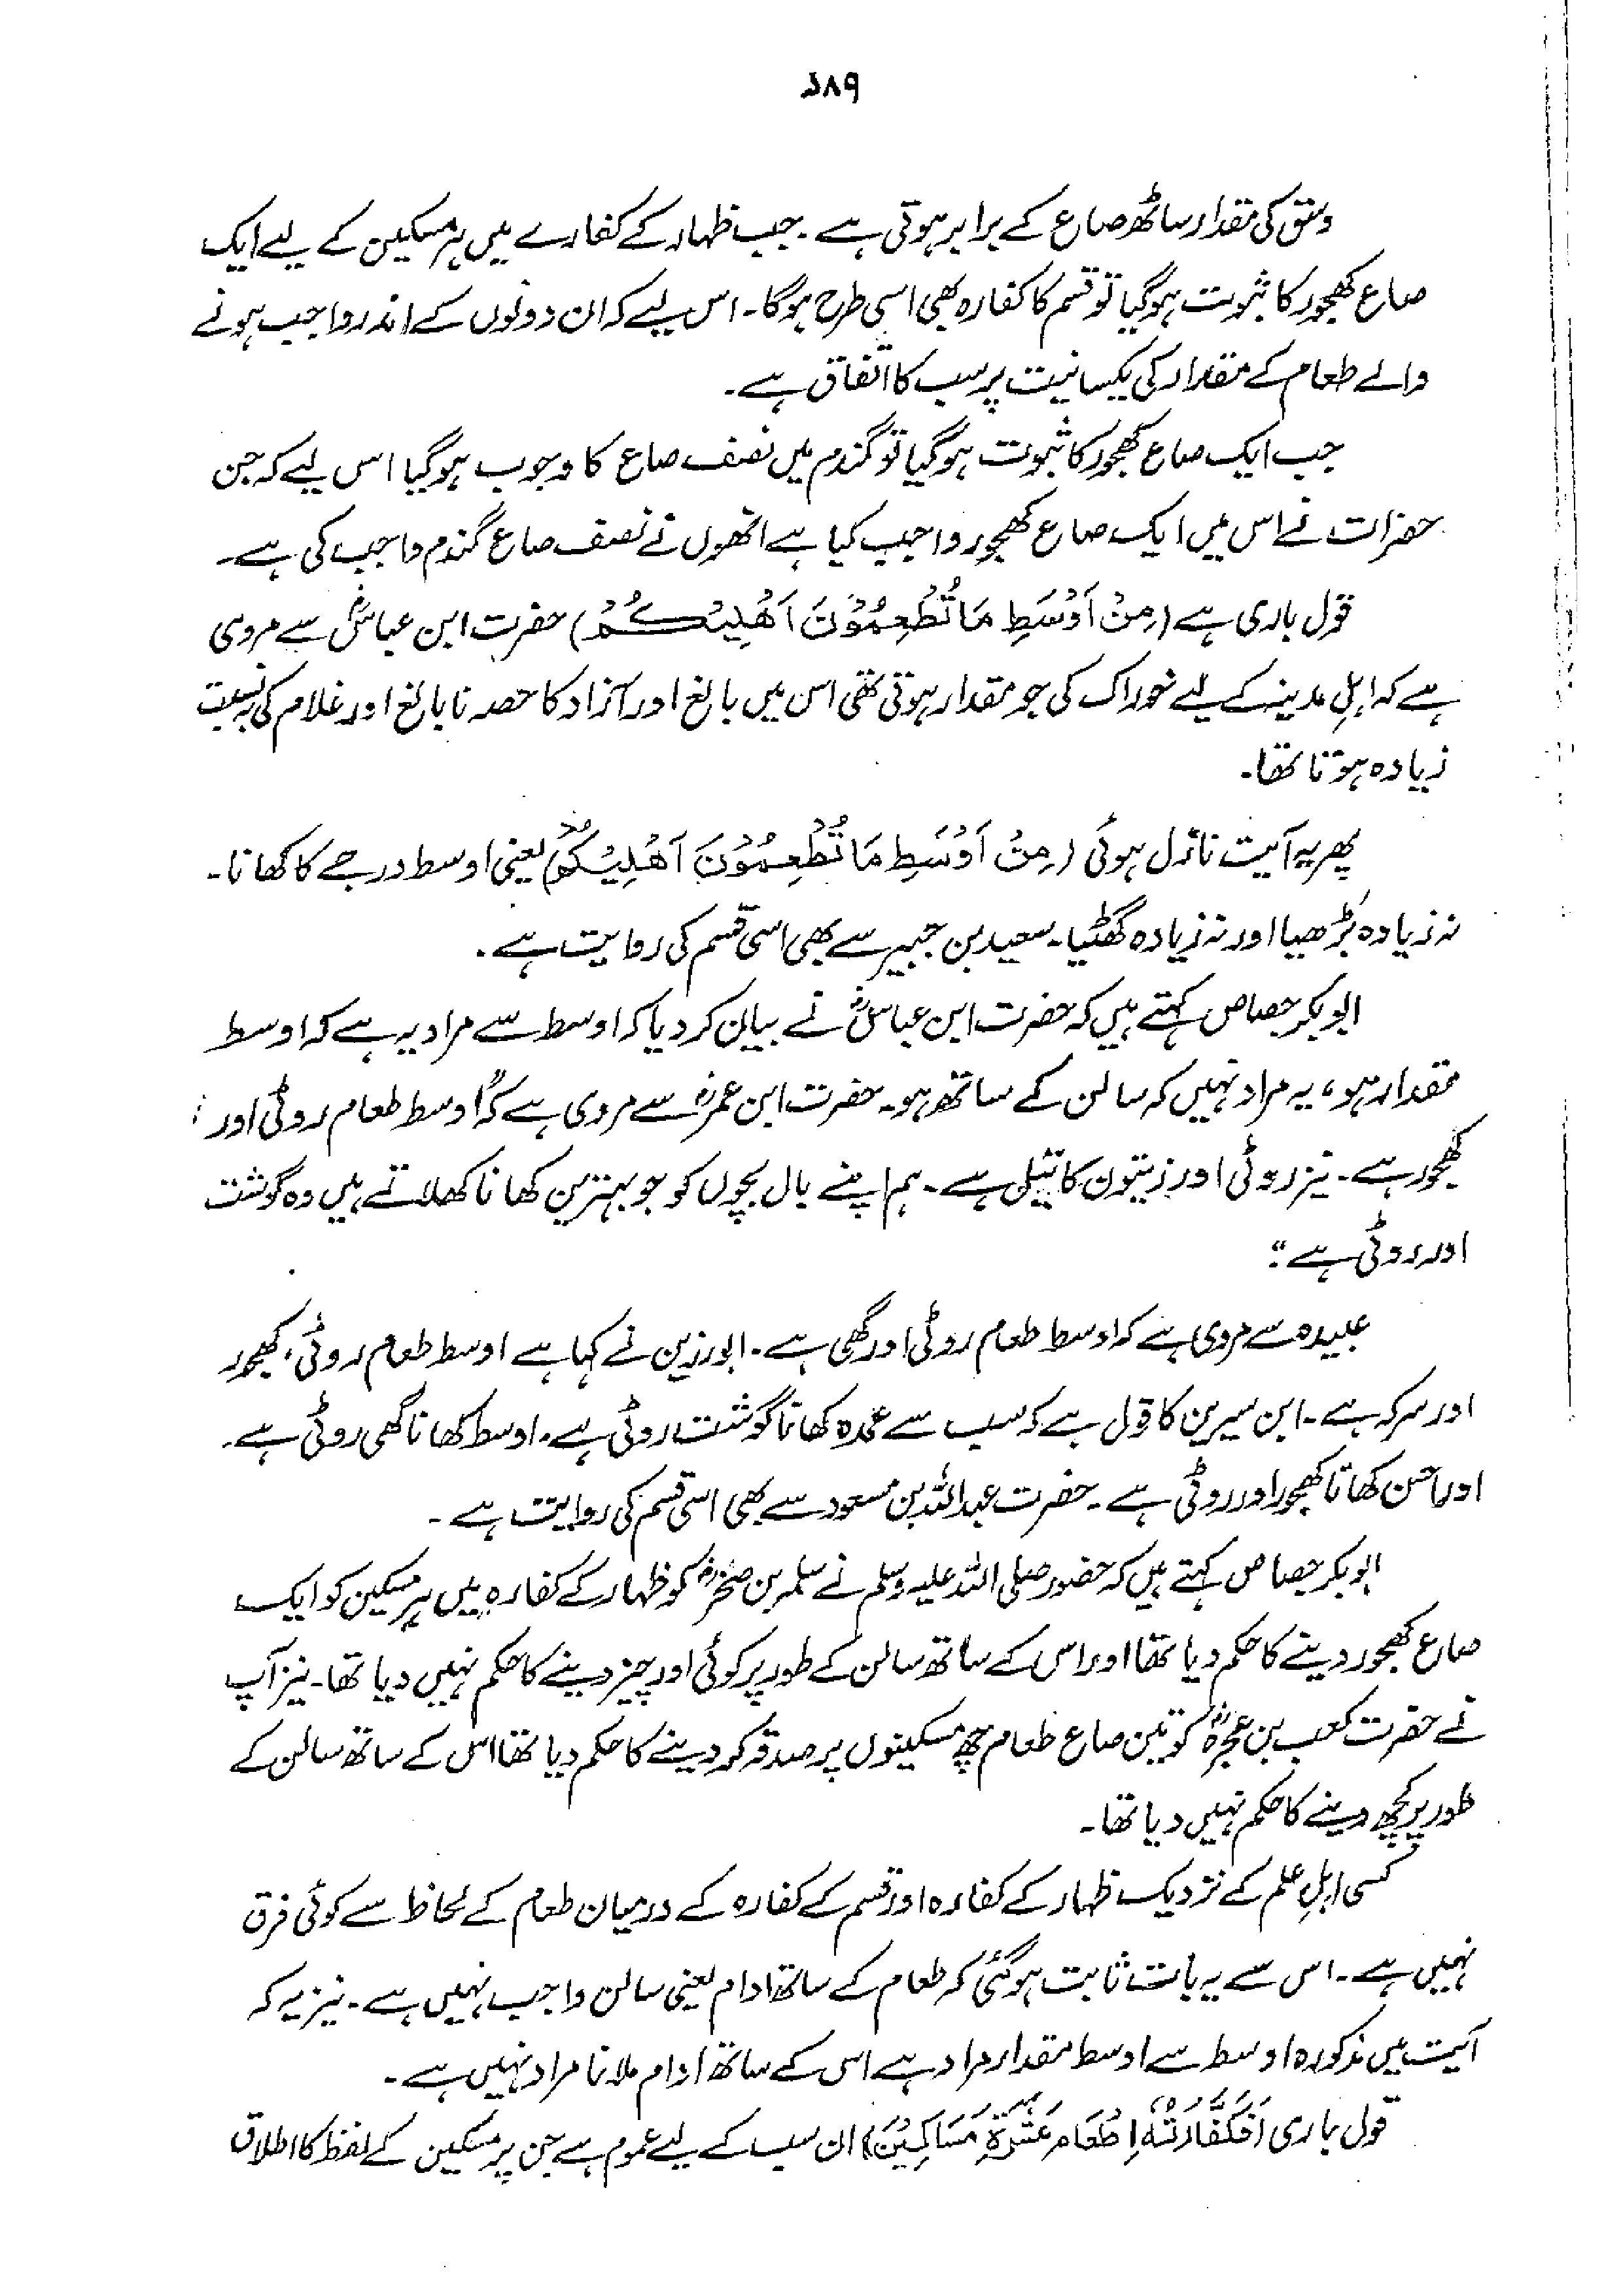 ۵۸۹
وسق کی مقدار ساٹھ صاع کے برابر ہوتی ہے۔ جب ظہار کے کفارے میں ہر مسکین کے لیے ایک
صاع کھجور کا ثبوت ہوگیا تو قسم کا کفارہ بھی اسی طرح ہوگا۔ اس لیے کہ ان دونوں کے اندر واجب ہونے
والے طعام کے مقدار کی یکسانیت پر سب کا اتفاق ہے۔
جب ایک صاع کھجور کا ثبوت ہوگیا تو گندم میں نصف صاع کا وجوب ہوگیا اس لیے کہ جن
حضرات نے اس میں ایک صاع کھجور واجب کیا ہے انھوں نے نصف صاع گندم واجب کی ہے۔
قول باری ہے (مِنْ اَوْسَطِ مَا تُطْعِمُوْنَ اَهْلِيْكُمْ) حضرت ابن عباسؓ سے مروی
ہے کہ اہلِ مدینہ کے لیے خوراک کی جو مقدار ہوتی تھی اس میں بالغ اور آزاد کا حصہ نابالغ اور غلام کی بہ نسبت
زیادہ ہوتا تھا۔
پھر یہ آیت نازل ہوئی (مِنْ اَوْسَطِ مَا تُطْعِمُوْنَ اَهْلِيْكُمْ) یعنی اوسط درجے کا کھانا۔
نہ زیادہ بڑھیا اور نہ زیادہ گھٹیا۔ سعید بن جبیر سے بھی اسی قسم کی روایت ہے۔
ابوبکر جصاص کہتے ہیں کہ حضرت ابن عباسؓ نے بیان کردیا کہ اوسط سے مراد یہ ہے کہ اوسط
مقدار ہو، یہ مراد نہیں کہ سالن کے ساتھ ہو۔ حضرت ابن عمرؓ سے مروی ہے کہ "اوسط طعام روٹی اور
کھجور ہے۔ نیز روٹی اور زیتون کا تیل ہے۔ ہم اپنے بال بچوں کو جو بہترین کھانا کھلاتے ہیں وہ گوشت
اور روٹی ہے"۔
عبیدہ سے مروی ہے کہ اوسط طعام روٹی اور گھی ہے۔ ابورزین نے کہا ہے اوسط طعام روٹی، کھجور
اور سرکہ ہے۔ ابن سیرین کا قول ہے کہ سب سے عمدہ کھانا گوشت روٹی ہے۔ اوسط کھانا گھی روٹی ہے۔
اور احسن کھانا کھجور اور روٹی ہے۔ حضرت عبداللہ بن مسعود سے بھی اسی قسم کی روایت ہے۔
ابوبکر جصاص کہتے ہیں کہ حضور صلی اللہ علیہ وسلم نے سلمہ بن صخرؓ کو ظہار کے کفارہ میں ہر مسکین کو ایک
صاع کھجور دینے کا حکم دیا تھا اور اس کے ساتھ سالن کے طور پر کوئی اور چیز دینے کا حکم نہیں دیا تھا۔ نیز آپ
نے حضرت کعب بن عجرہؓ کو تین صاع طعام چھ مسکینوں پر صدقہ کر دینے کا حکم دیا تھا اس کے ساتھ سالن کے
طور پر کچھ دینے کا حکم نہیں دیا تھا۔
کسی اہلِ علم کے نزدیک ظہار کے کفارہ اور قسم کے کفارہ کے درمیان طعام کے لحاظ سے کوئی فرق
نہیں ہے۔ اس سے یہ بات ثابت ہوگئی کہ طعام کے ساتھ ادام یعنی سالن واجب نہیں ہے۔ نیز یہ کہ
آیت میں مذکورہ اوسط سے اوسط مقدار مراد ہے اس کے ساتھ ادام ملانا مراد نہیں ہے۔
قول باری (فَكَفَّارَتُهٗ اِطْعَامُ عَشَرَةِ مَسَاكِيْنَ) ان سب کے لیے عموم ہے جن پر مسکین کے لفظ کا اطلاق